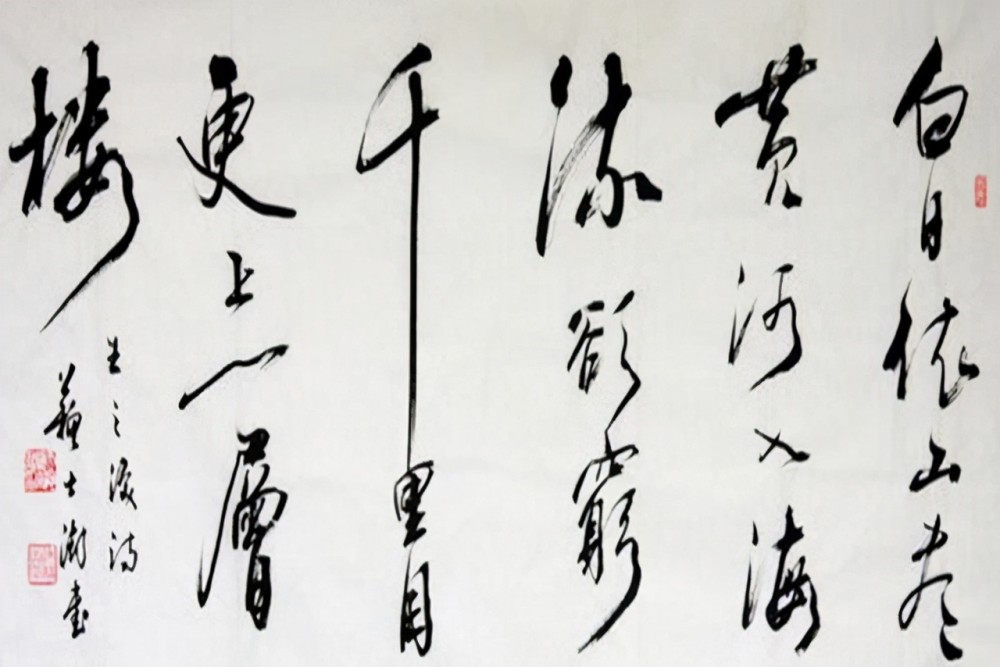 白日依山尽
黄河入海
流欲穷
千里目
更上一層
楼
王之涣诗
苏士澍书